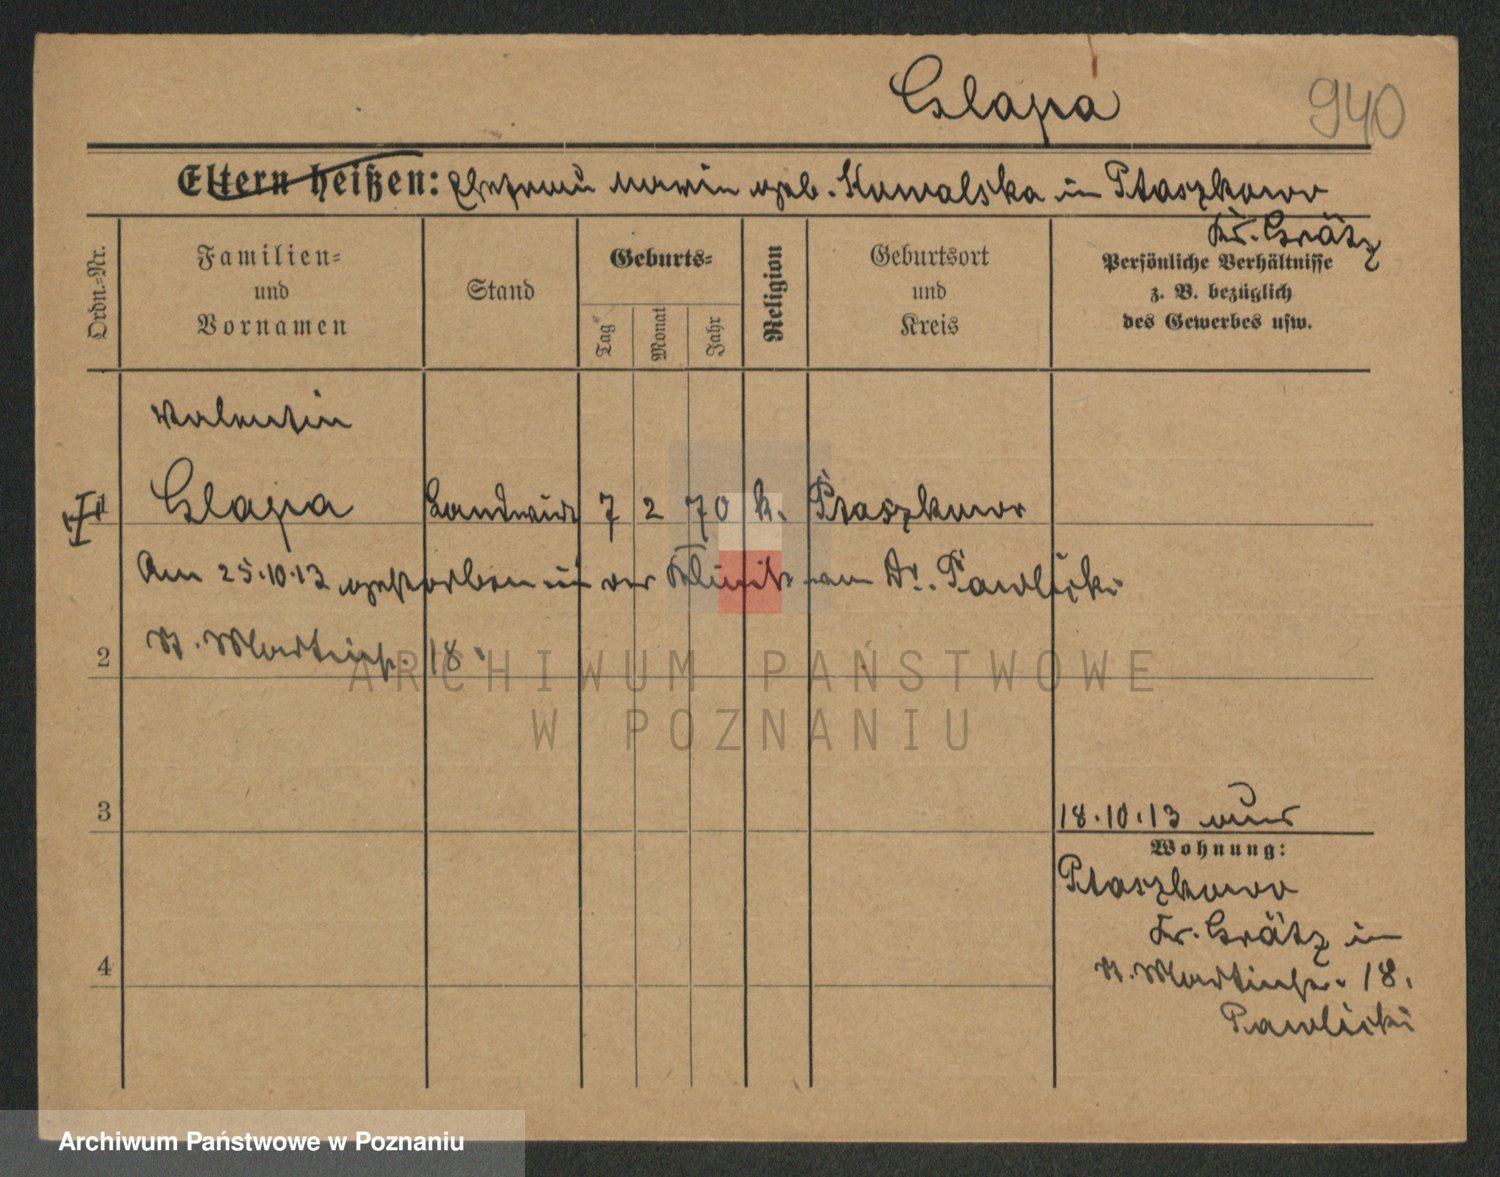 Glapa
940
Eltern heißen: Ehefrau Marie geb. Kowalska in Ptaszkowo
Kr. Grätz
Ordn.-Nr.
Familien-
und
Vornamen
Stand
Geburts-
Tag
Monat
Jahr
Religion
Geburtsort
und
Kreis
Persönliche Verhältnisse
z. B. bezüglich
des Gewerbes usw.
Valentin
1 Glapa Landwirt 7 2 70 k. Ptaszkowo
Am 25.10.13 gestorben in der Klinik am Dr. Pawlicki
2 St. Martinstr. 18.
ARCHIWUM PAŃSTWOWE
W POZNANIU
3
18.10.13
Wohnung:
Ptaszkowo
Kr. Grätz in
4
St. Martinstr. 18.
Pawlicki
Archiwum Państwowe w Poznaniu